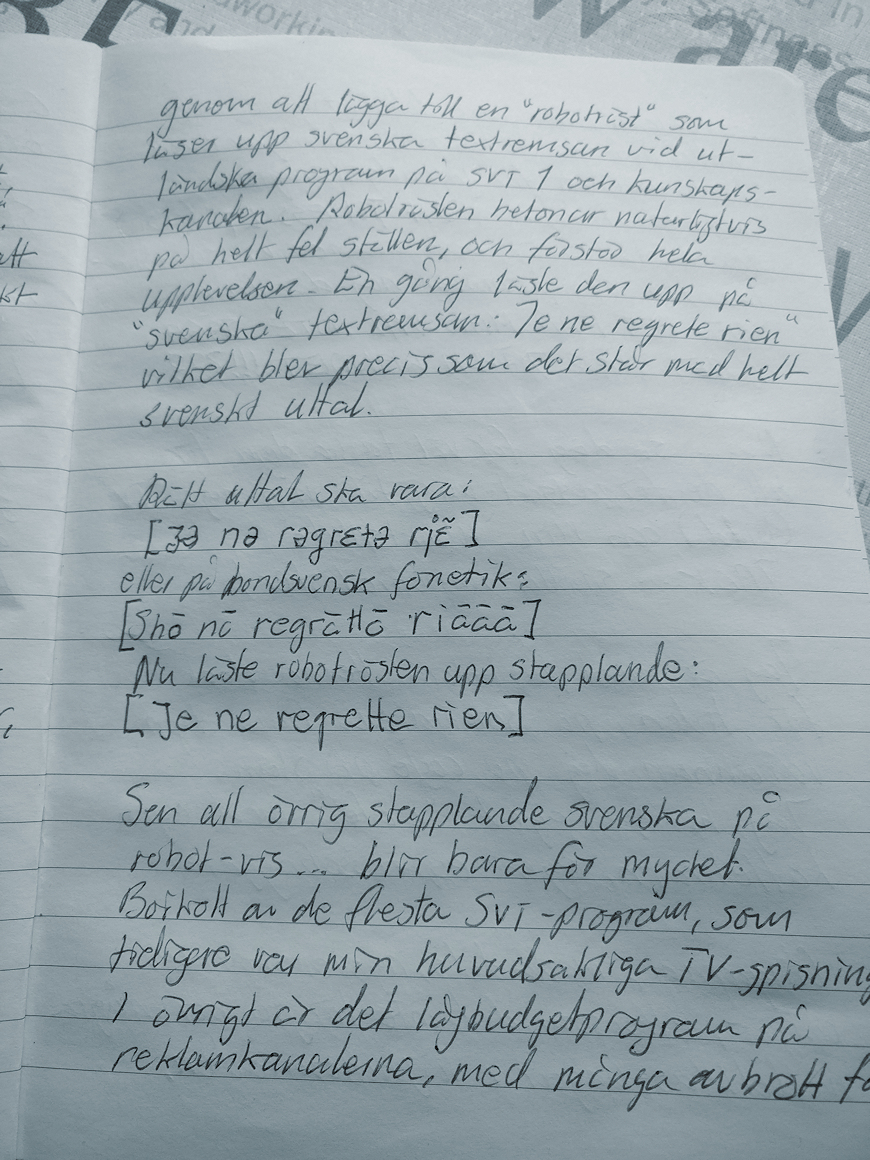 genom att lägga till en "robotröst" som
läser upp svenska textremsan vid ut-
ländska program på SVT 1 och kunskaps-
kanalen. Robotrösten betonar naturligtvis
på helt fel ställen, och förstör hela
upplevelsen. En gång läste den upp på
"svenska" textremsan: "Je ne regrete rien"
vilket blev precis som det står med helt
svenskt uttal.
Rätt uttal ska vara:
[ʒə nə rəgrɛtə rjɛ̃]
eller på bondsvensk fonetik:
[Shö nö regrättö riäää]
Nu läste robotrösten upp stapplande:
[Je ne regrette rien]
Sen all övrig stapplande svenska på
robot-vis... blir bara för mycket.
Bojkott av de flesta SVT-program, som
tidigare var min huvudsakliga TV-spisning
I övrigt är det lågbudgetprogram på
reklamkanalerna, med många avbrott
att